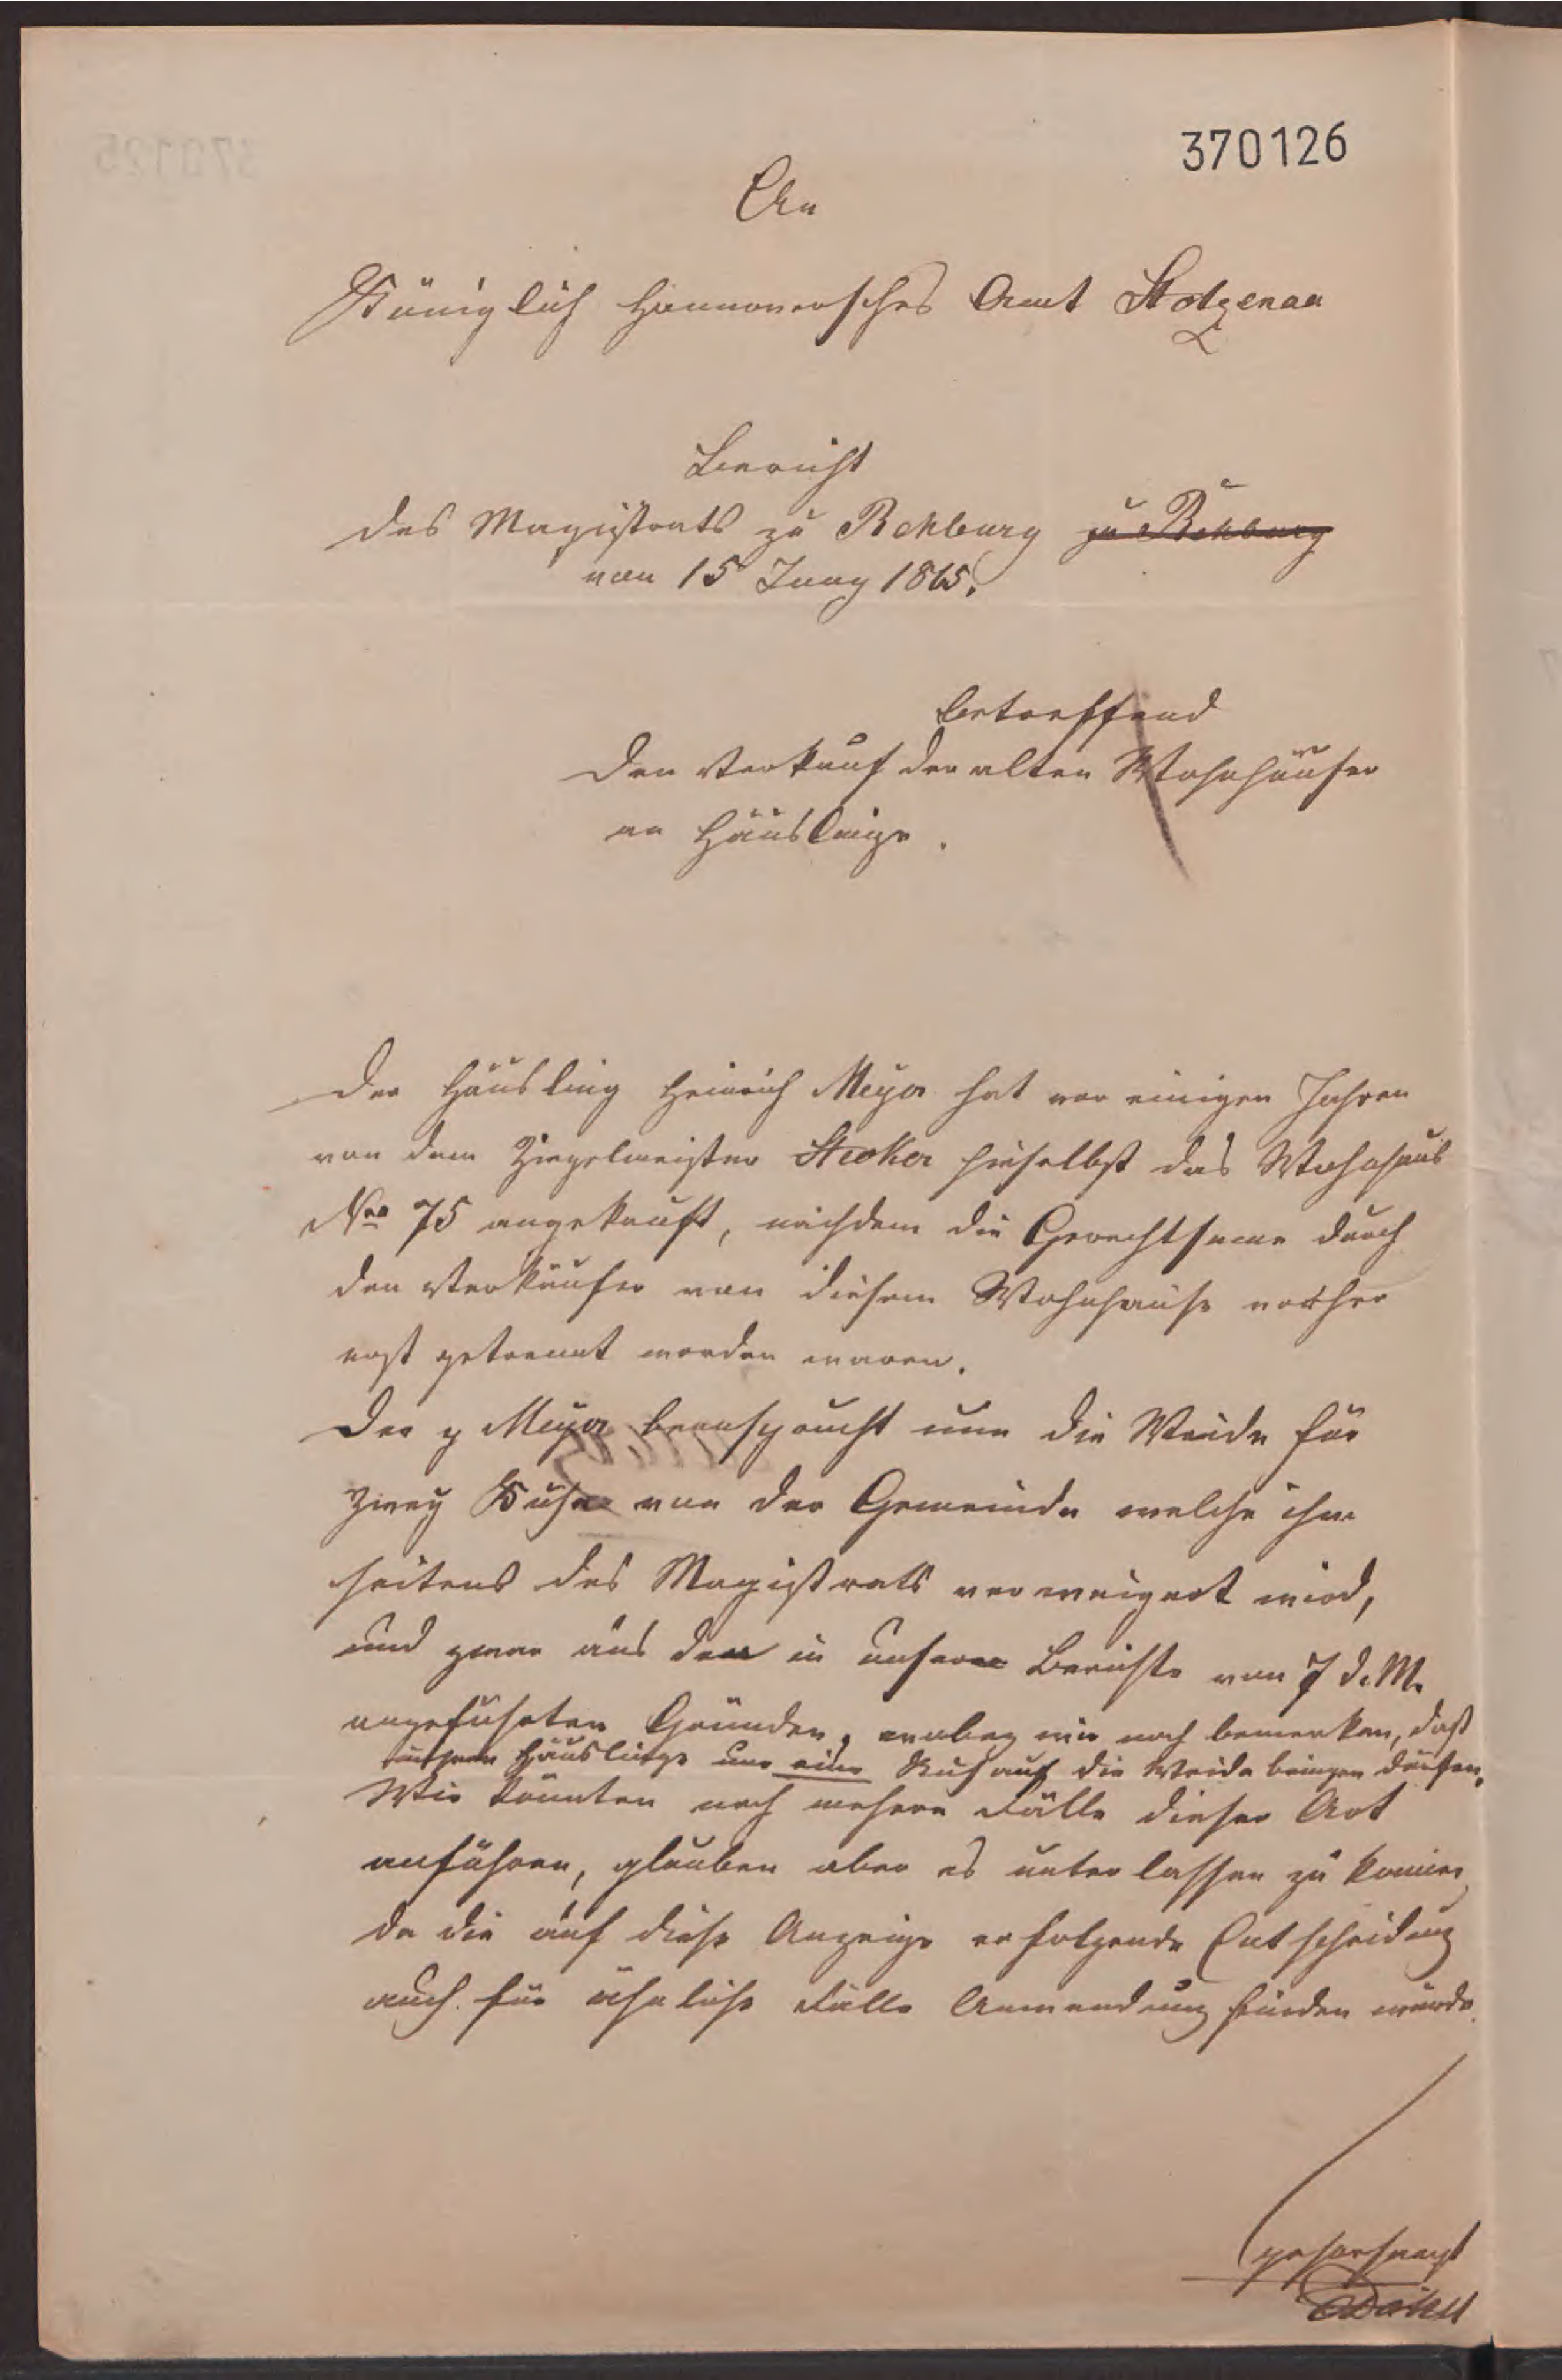 370126
An
Königlich Hannoversches Amt Stolzenau
Bericht
des Magistrats zu Rehburg zu Rehburg
von 15 Juny 1865.
betreffend
den Verkauf der alten Wohnhäuser
an Häuslinge.
Der Häusling Heinrich Meyer hat vor einigen Jahren
von dem Ziegelmeister hieselbst das Wohnhaus
Nro 75 angekauft, nachdem die Gerechtsame durch
den Verkäufer von diesem Wohnhause vorher
erst getrennt worden waren.
Der p Meyer beansprucht nun die Weide für
zwey Kühe von der Gemeinde welche ihm
seitens des Magistrats verweigert wird,
und zwar aus den in unserm Berichte von 7 d. M.
angeführten Gründen, wobey wir noch bemerken, daß
Häuslinge nur eine Kuh auf die Weide bringen dürfen.
Wir könnten noch mehere Fälle dieser Art
anführen, glauben aber es unterlassen zu können
da die auf diese Anzeige erfolgende Entscheidung
auch für ähnliche Fälle Anwendung finden würde.
gehorsamst